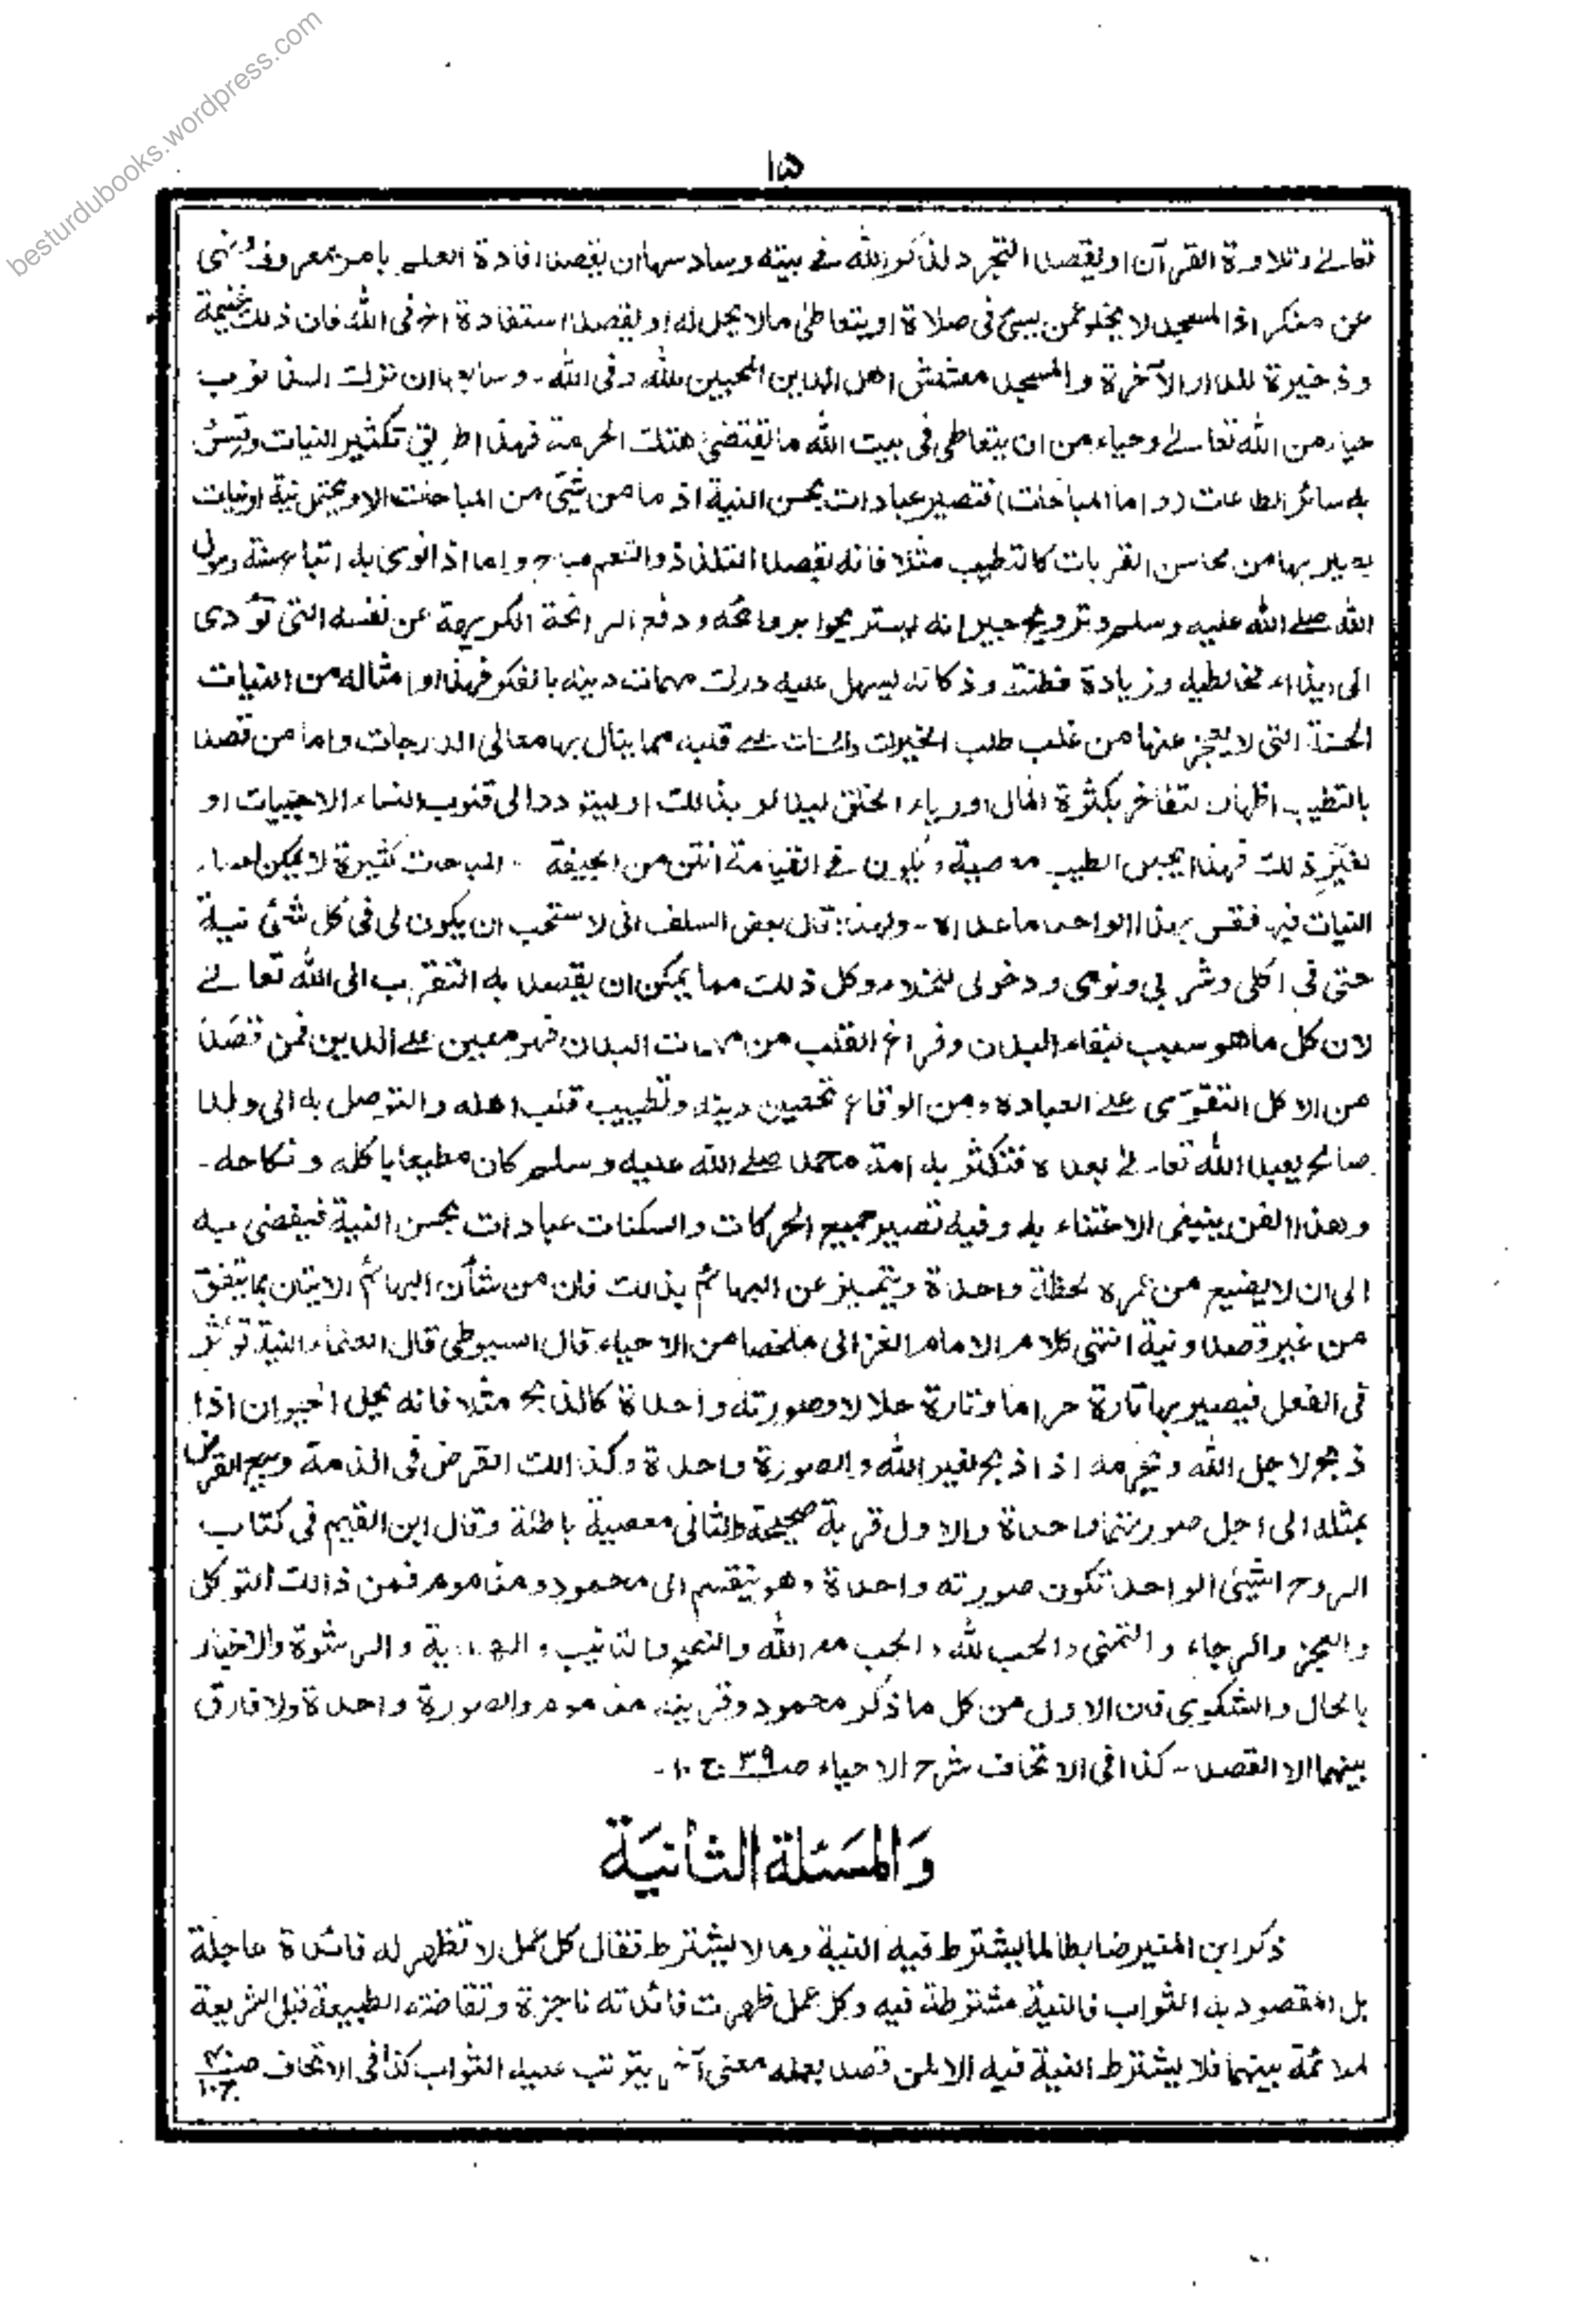 besturdubooks.wordpress.com
۱۵
تعالے وتلاوة القرآن او يقصد التجرد لذكر الله فے بيته وسادسها ان يقصد افادة العلم بامر بمعروف ونهى
عن منكر اذ المسجد لا يخلو عمن يسئ فى صلاة او يتعاطى مالا يحل له او يقصد استفادة اخ فى الله فان ذلك غنيمة
وذخيرة للدار الآخرة والمسجد معشش اهل الدين المحبين لله وفى الله - وسابعها ان تترك الذنوب
حياء من الله تعالے وحياء من ان يتعاطى فى بيت الله ما يقتضى هتك الحرمة فهذا طريق تكثير النيات وقس
به سائر الطاعات (و اما المباحات) فتصير عبادات بحسن النية اذ ما من شئ من المباحات الا ويحتمل نية او نيات
يصير بها من محاسن القربات كالتطيب مثلا فانه بقصد التلذذ والتنعم مباح واما اذا نوى به اتباع سنة رسول
الله صلے الله عليه وسلم وترويح جيرانه ليستريحوا بروائحه ودفع الرائحة الكريهة عن نفسه التى تؤدى
الى ايذاء مخالطيه وزيادة فطنته وذكائه ليسهل عليه درك مهمات دينه بالفكر فهذا وامثاله من النيات
الحسنة التى لا يعجز عنها من غلب طلب الخيرات والحسنات علے قلبه مما ينال بها معالى الدرجات واما من قصد
بالتطيب اظهار التفاخر بكثرة المال او رياء الخلق ليذكر بذالك او ليتودد الى قلوب النساء الاجنبيات او
لغير ذلك فهذا يجعل الطيب معصية ويكون فے القيامة انتن من الجيفة - المباحات كثيرة لا يمكن احصاء
النيات فيها فقس بهذا الواحد ما عداه - ولهذا قال بعض السلف انى لاستحب ان يكون لى فى كل شئ نية
حتى فى اكلى وشربى ونومى ودخولى للخلاء وكل ذلك مما يمكن ان يقصد به التقرب الى الله تعالے
لان كل ما هو سبب لبقاء البدن وفراغ القلب من مهمات البدن فهو معين علے الدين فمن قصد
من الاكل التقوى علے العبادة ومن الوقاع تحصين دينه وتطييب قلب اهله والتوصل به الى ولد
صالح يعبد الله تعالے بعده فتكثر به امة محمد صلے الله عليه وسلم كان مطيعا باكله ونكاحه -
وهذا الفن ينبغى الاعتناء به وفيه تصير جميع الحركات والسكنات عبادات بحسن النية فيفضى به
الى ان لا يضيع من عمره لحظة واحدة ويتميز عن البهائم بذالك فان من شأن البهائم الاتيان بما يتفق
من غير قصد ونية انتهى كلام الامام الغزالى ملخصا من الاحياء قال السيوطى قال العلماء النية تؤثر
فى الفعل فيصير بها تارة حراما وتارة حلالا وصورته واحدة كالذبح مثلا فانه يحل الحيوان اذا
ذبح لاجل الله ويحرمه اذا ذبح لغير الله والصورة واحدة وكذالك القرض فى الذمة وبيع القرض
بمثله الى اجل صورتهما واحدة والاول قربة صحيحة والثانى معصية باطلة وقال ابن القيم فى كتاب
الروح الشيئ الواحد تكون صورته واحدة وهو ينقسم الى محمود ومذموم فمن ذالك التوكل
والعجز والرجاء والتمنى والحب لله والحب مع الله والنصح والتانيب والهدية والرشوة والاخبار
بالحال والشكوى فان الاول من كل ما ذكر محمود وقرينه مذموم والصورة واحدة ولا فارق
بينهما الا القصد - كذا فى الاتحاف شرح الاحياء صـ ٣٩ ج ١٠ -
وَالمَسْئلة الثانيَة
ذكر ابن المنير ضابطا لما يشترط فيه النية وما لا يشترط فقال كل عمل لا تظهر له فائدة عاجلة
بل المقصود به الثواب فالنية مشترطة فيه وكل عمل ظهرت فائدته ناجزة وتقاضته الطبيعة قبل الشريعة
لملائمة بينهما فلا يشترط النية فيه الا لمن قصد بعمله معنى آخر يترتب عليه الثواب كذا فى الاتحاف ج ١٠